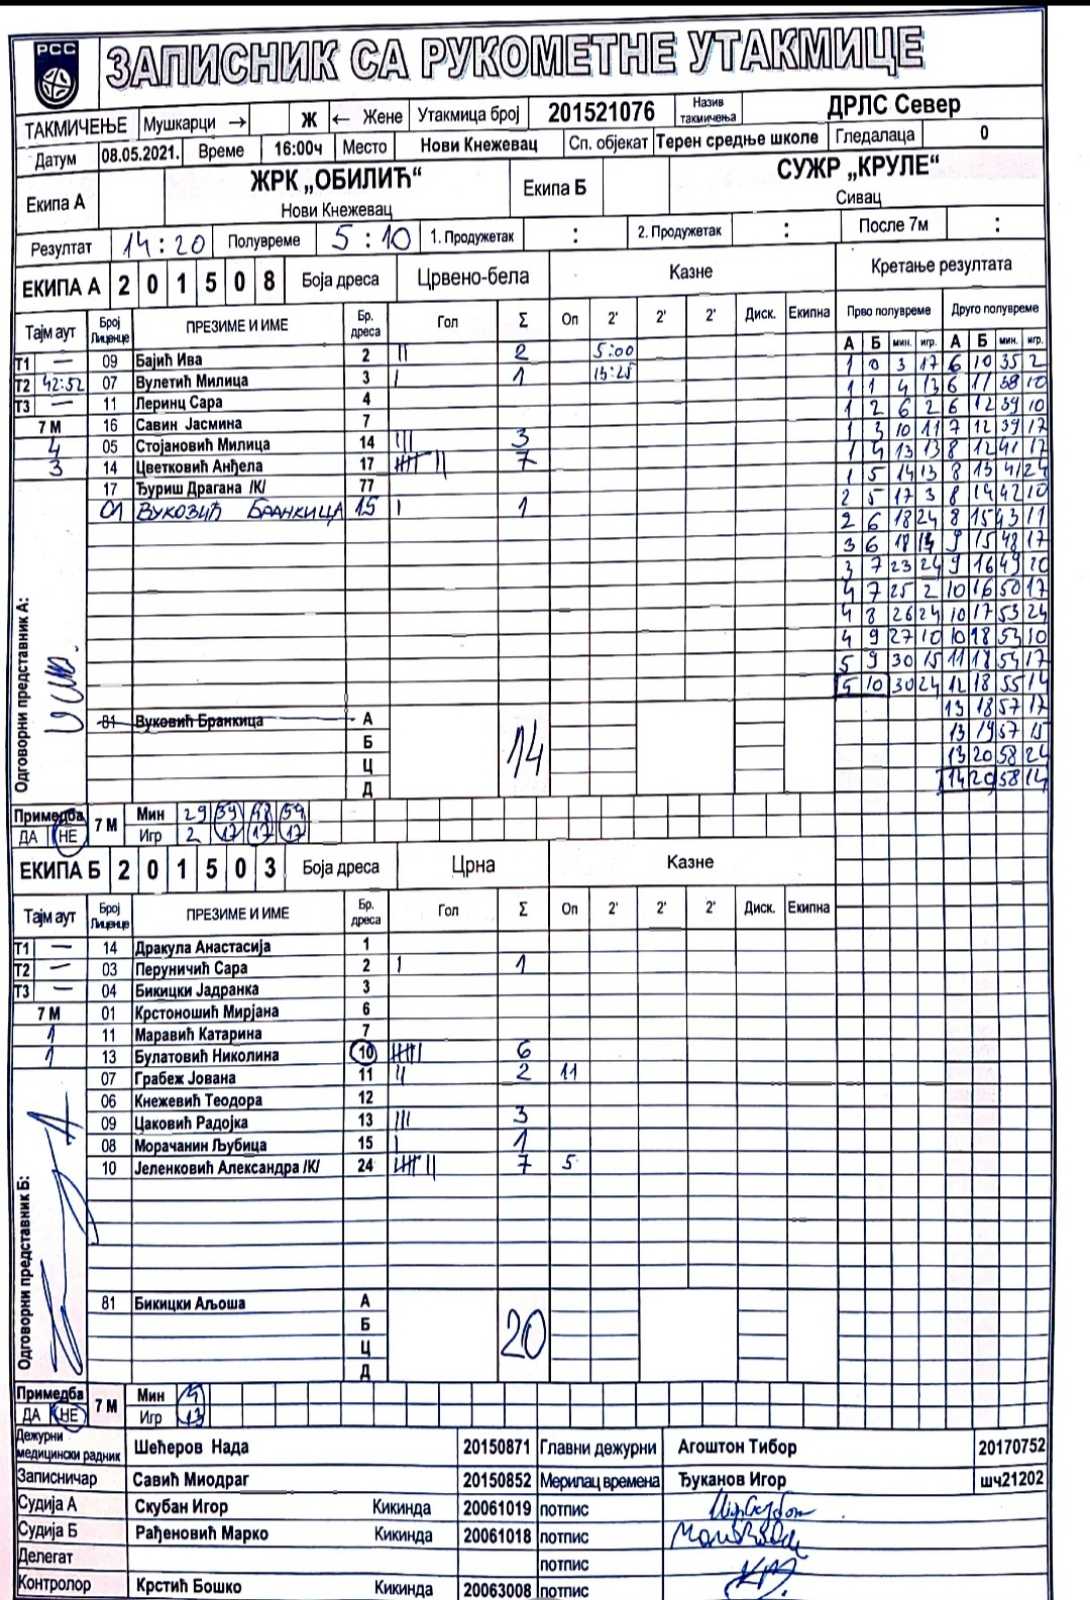 РСС
ЗАПИСНИК СА РУКОМЕТНЕ УТАКМИЦЕ
ТАКМИЧЕЊЕ Мушкарци → Ж ← Жене Утакмица број 201521076 Назив такмичења ДРЛС Север
Датум 08.05.2021. Време 16:00ч Место Нови Кнежевац Сп. објекат Терен средње школе Гледалаца 0
Екипа А ЖРК „ОБИЛИЋ“ Екипа Б СУЖР „КРУЛЕ“
Нови Кнежевац Сивац
Резултат 14:20 Полувреме 5:10 1. Продужетак : 2. Продужетак : После 7м :
ЕКИПА А 2 0 1 5 0 8 Боја дреса Црвено-бела Казне Кретање резултата
Тајм аут Број Лиценце ПРЕЗИМЕ И ИМЕ Бр. дреса Гол Σ Оп 2' 2' 2' Диск. Екипна Прво полувреме Друго полувреме
А Б мин. игр. А Б мин. игр.
T1 — 09 Бајић Ива 2 || 2 5:00 1 0 3 17 6 10 35 2
T2 42:52 07 Вулетић Милица 3 | 1 13:25 1 1 4 13 6 11 38 10
T3 — 11 Леринц Сара 4 1 2 6 2 6 12 39 10
7 М 16 Савин Јасмина 7 1 3 10 11 7 12 39 17
4 05 Стојановић Милица 14 ||| 3 1 4 13 13 8 12 41 17
3 14 Цветковић Анђела 17 7 1 5 14 13 8 13 41 24
17 Ђуриш Драгана /К/ 77 2 5 17 3 8 14 42 10
01 ВУКОВИЋ БРАНКИЦА 15 | 1 2 6 18 24 8 15 43 11
3 6 18 14 9 15 48 17
3 7 23 24 9 16 49 20
4 7 25 2 10 16 50 17
4 8 26 24 10 17 53 24
4 9 27 10 10 18 53 10
5 9 30 15 11 18 54 17
5 10 30 24 12 18 55 14
81 Вуковић Бранкица А 13 18 57 17
Б 13 19 57 15
Ц 14 13 20 58 24
Д 14 20 58 14
Одговорни представник А:
Примедба 7 М Мин 29 39 48 54
ДА НЕ Игр 2 17 17 17
ЕКИПА Б 2 0 1 5 0 3 Боја дреса Црна Казне
Тајм аут Број Лиценце ПРЕЗИМЕ И ИМЕ Бр. дреса Гол Σ Оп 2' 2' 2' Диск. Екипна
T1 — 14 Дракула Анастасија 1
T2 — 03 Перуничић Сара 2 | 1
T3 — 04 Бикицки Јадранка 3
7 М 01 Крстоношић Мирјана 6
1 11 Маравић Катарина 7
1 13 Булатовић Николина 10 6
07 Грабеж Јована 11 || 2 11
06 Кнежевић Теодора 12
09 Цаковић Радојка 13 ||| 3
08 Морачанин Љубица 15 | 1
10 Јеленковић Александра /К/ 24 7 5
81 Бикицки Аљоша А
Б 20
Ц
Д
Одговорни представник Б:
Примедба 7 М Мин 4
ДА НЕ Игр 13
Дежурни медицински радник Шећеров Нада 20150871 Главни дежурни Агоштон Тибор 20170752
Записничар Савић Миодраг 20150852 Мерилац времена Ђуканов Игор шч21202
Судија А Скубан Игор Кикинда 20061019 потпис
Судија Б Рађеновић Марко Кикинда 20061018 потпис
Делегат потпис
Контролор Крстић Бошко Кикинда 20063008 потпис